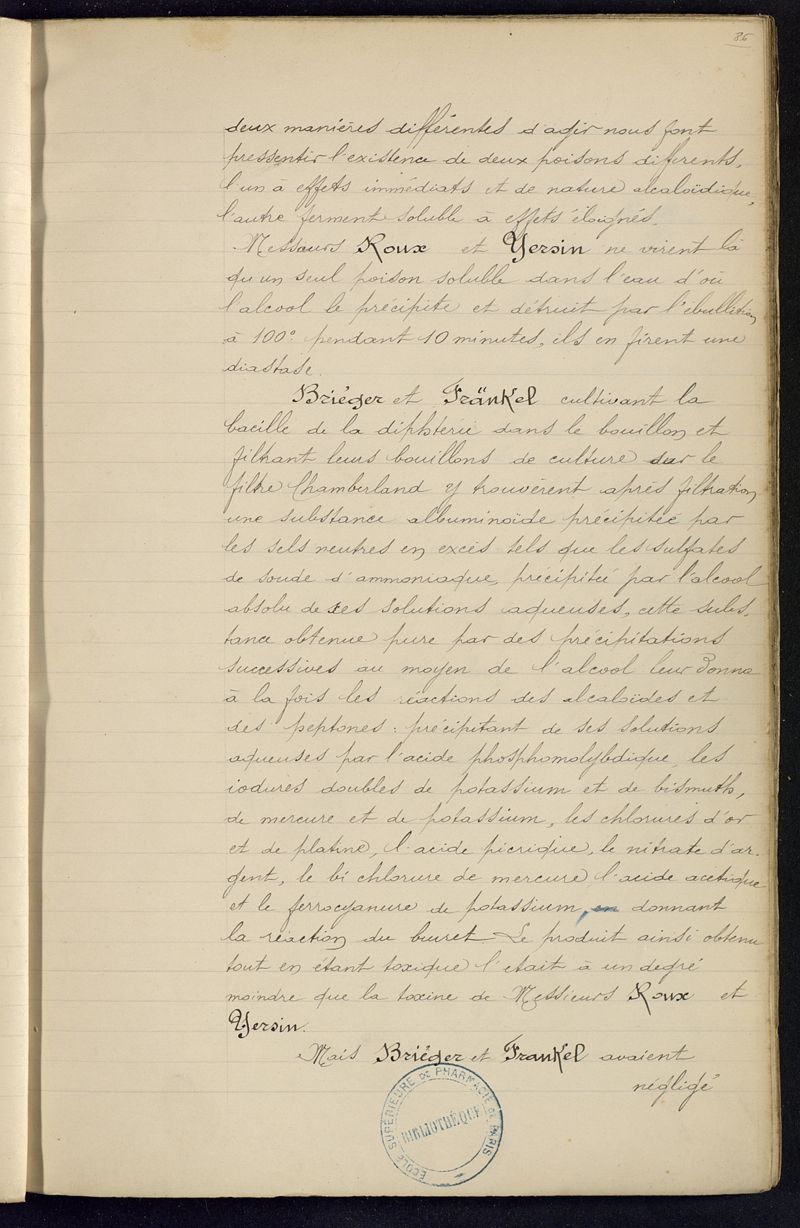 86
deux manières différentes d'agir nous font
pressentir l'existence de deux poisons différents,
l'un à effets immédiats et de nature alcaloïdique,
l'autre ferment soluble à effets éloignés.
Messieurs Roux et Yersin ne virent là
qu'un seul poison soluble dans l'eau d'où
l'alcool le précipite et détruit par l'ébullition
à 100° pendant 10 minutes, ils en firent une
diastase.
Briéger et Fränkel cultivant la
bacille de la diphterie dans le bouillon et
filtrant leurs bouillons de culture sur le
filtre Chamberland y trouvèrent après filtration
une substance albuminoïde précipitée par
les sels neutres en excès tels que les sulfates
de soude d'ammoniaque, précipitée par l'alcool
absolu de ses solutions aqueuses, cette subs-
tance obtenue pure par des précipitations
successives au moyen de l'alcool leur donna
à la fois les réactions des alcaloïdes et
des peptones : précipitant de ses solutions
aqueuses par l'acide phosphomolybdique, les
iodures doubles de potassium et de bismuth,
de mercure et de potassium, les chlorures d'or
et de platine, l'acide picrique, le nitrate d'ar-
gent, le bi chlorure de mercure l'acide acétique
et le ferrocyanure de potassium, en donnant
la réaction du biuret. Le produit ainsi obtenu
tout en étant toxique l'etait à un degré
moindre que la toxine de Messieurs Roux et
Yersin.
Mais Briéger et Frankel avaient
négligé
ÉCOLE SUPÉRIEURE DE PHARMACIE DE PARIS
BIBLIOTHÈQUE